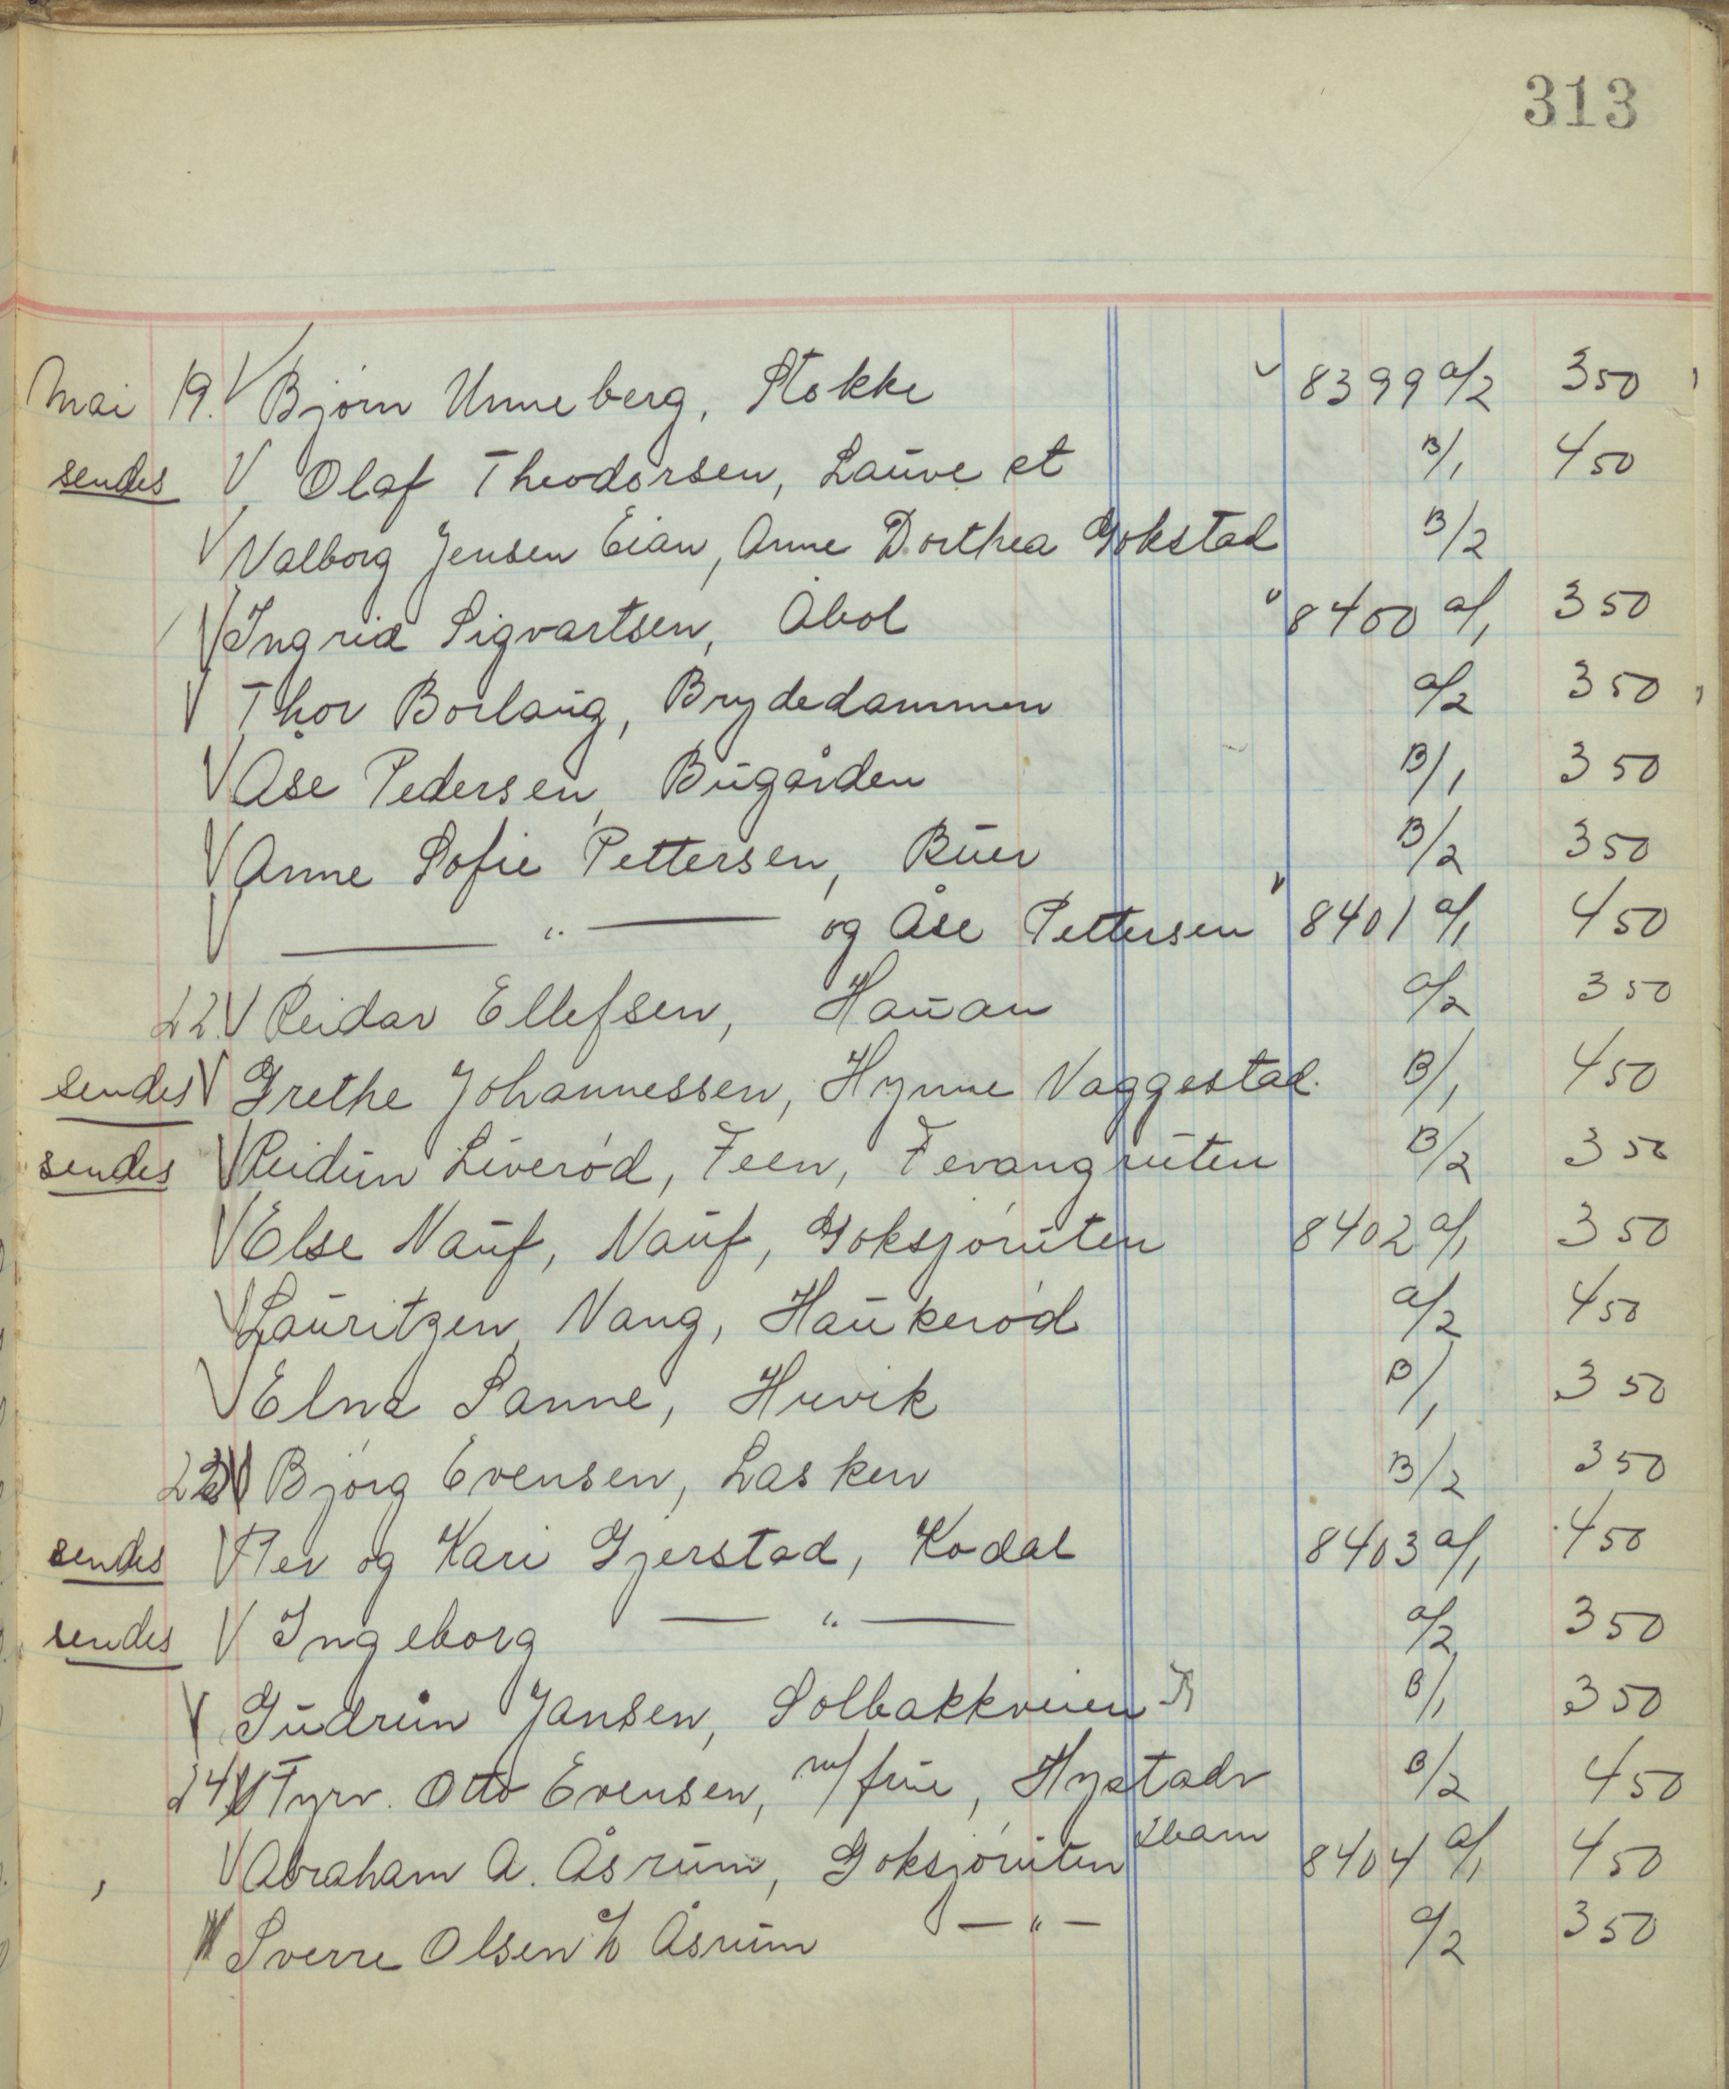 313
Mai 19. V Bjørn Unneberg, Stokke 8399 a/2 350
sendes V Olaf Theodorsen, Lauve et B/1 450
V Valborg Jensen Eian, Anne Dorthea Gokstad B/2
V Ingrid Sigvartsen, Åbol 8400 a/1 350
V Thor Borlaug, Brydedammen a/2 350
V Åse Pedersen, Bugården B/1 350
V Anne Sofie Pettersen, Buer B/2 350
V — " — og Åse Pettersen 8401 a/1 450
22. V Reidar Ellefsen, Hauan a/2 350
sendes V Grethe Johannessen, Hynne Vaggestad. B/1 450
sendes V Reidun Liverød, Feen, Fevangruten B/2 350
V Else Nauf, Nauf, Goksjøruten 8402 a/1 350
V Lauritzen, Vang, Haukerød a/2 450
V Elna Sanne, Huvik B/1 350
V Bjørg Evensen, Lasken B/2 350
sendes V Per og Kari Gjerstad, Kodal 8403 a/1 450
sendes V Ingeborg — " — a/2 350
V Gudrun Jansen, Solbakkveien B/1 350
24 V Fyrv. Otto Evensen, m/frue, Hystadv B/2 450
V Abraham A. Åsrum, Goksjøruten 8404 a/1 450
V Sverre Olsen Åsrum — " — a/2 350